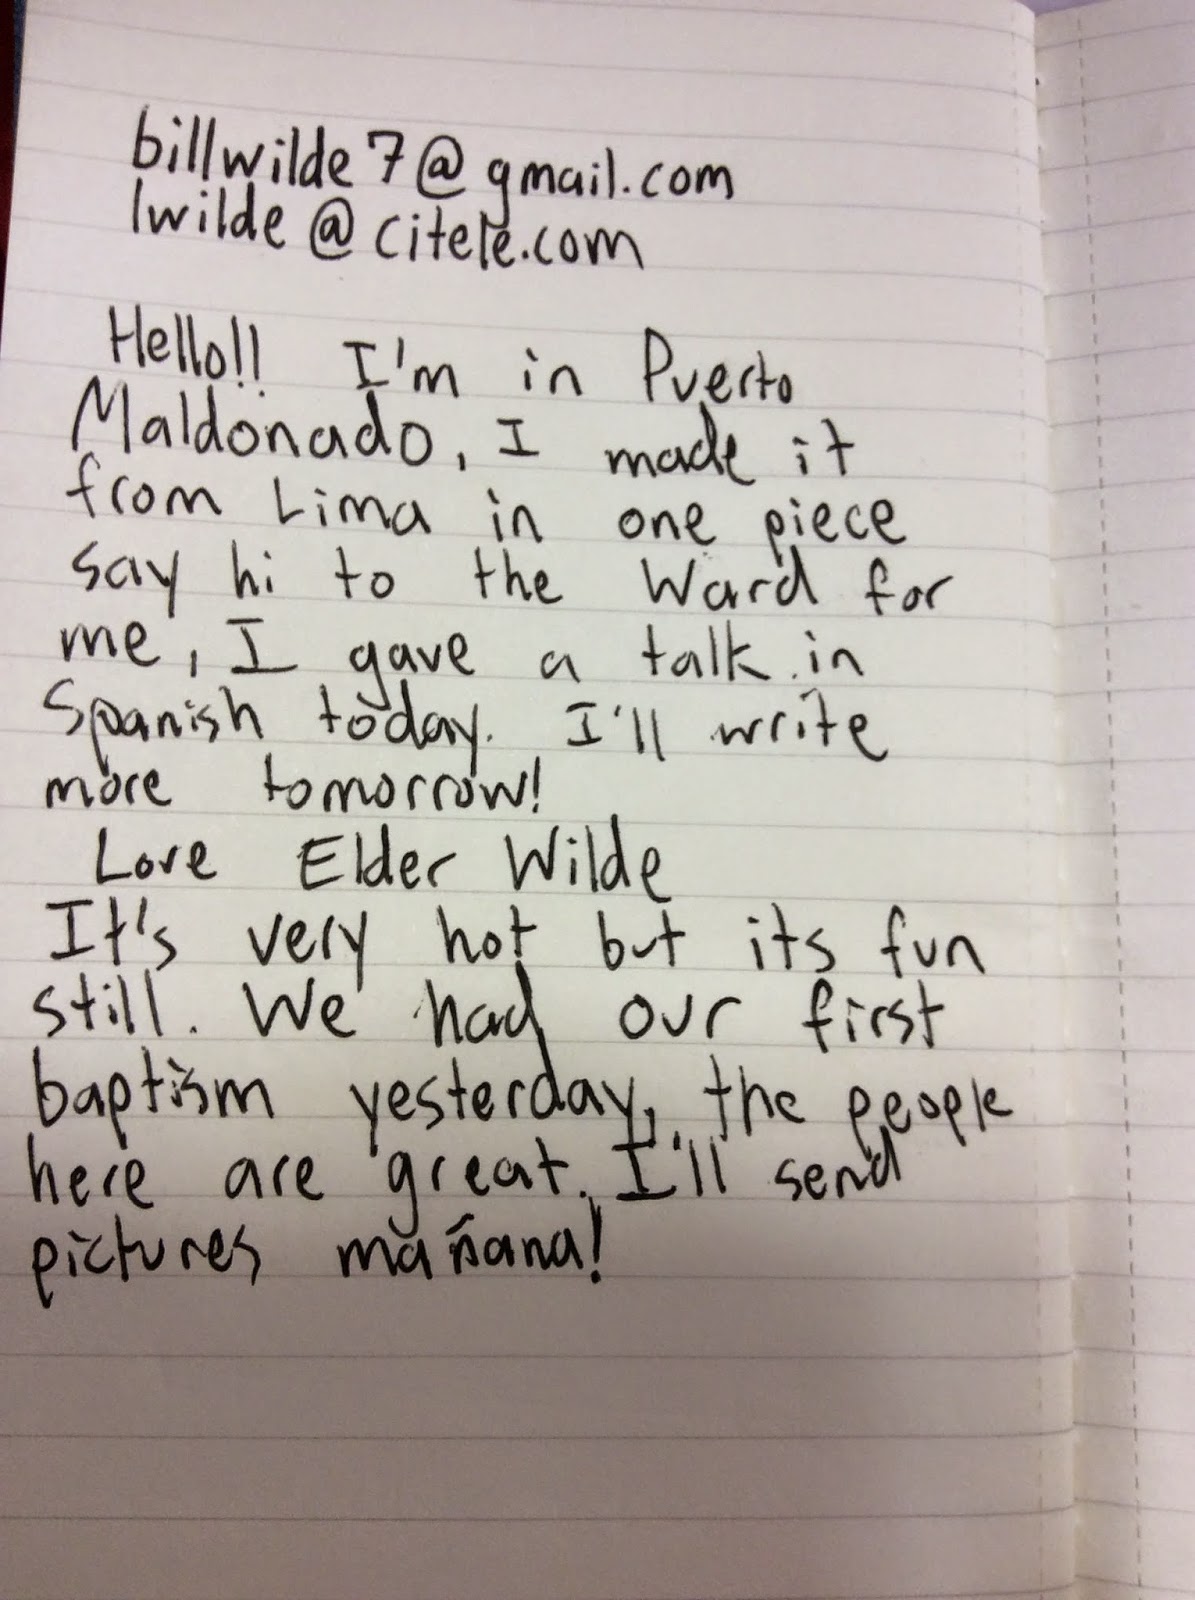 billwilde7@gmail.com
lwilde@citele.com
Hello!! I'm in Puerto
Maldonado, I made it
from Lima in one piece
say hi to the Ward for
me, I gave a talk in
Spanish today. I'll write
more tomorrow!
Love Elder Wilde
It's very hot but its fun
still. We had our first
baptism yesterday, the people
here are great. I'll send
pictures mañana!